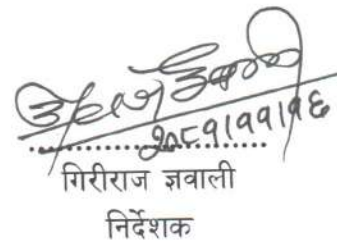 २०८१।११।१६
गिरीराज ज्ञवाली
निर्देशक